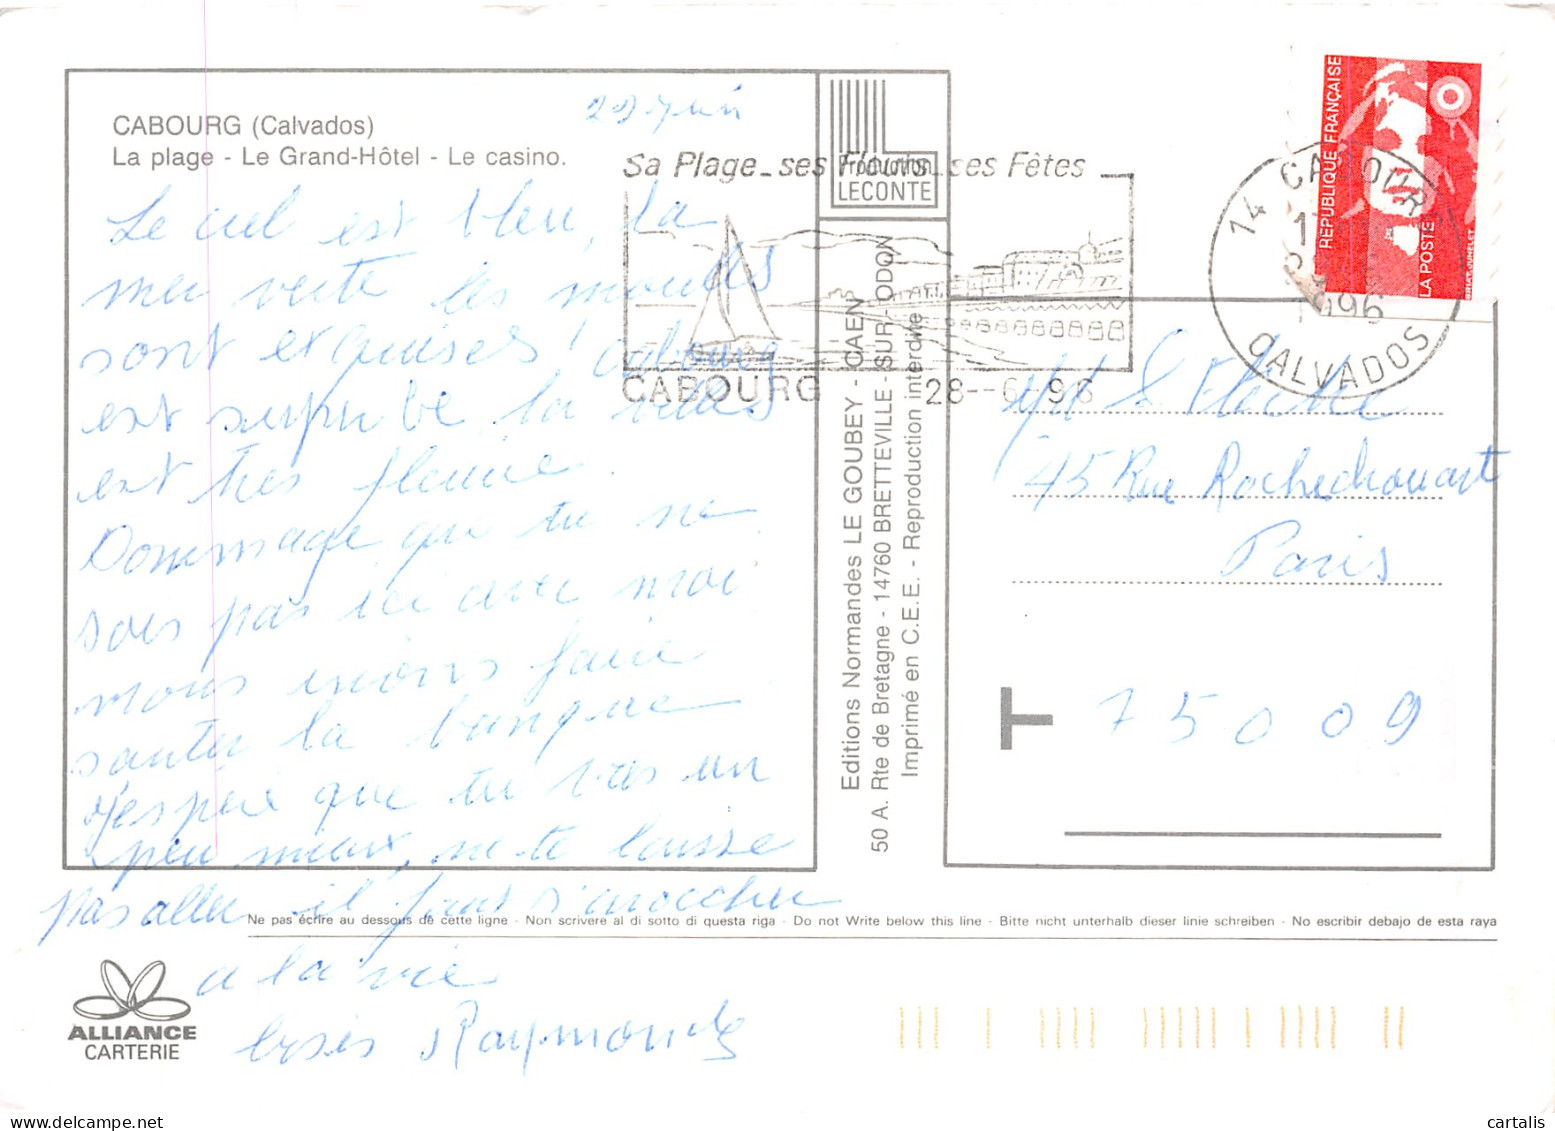 CABOURG (Calvados)
La plage - Le Grand-Hôtel - Le casino.
Production
LECONTE
Sa Plage_ses Fleurs_ses Fêtes
CABOURG 28--6-96
14 CABOURG
1996
CALVADOS
RÉPUBLIQUE FRANÇAISE
LA POSTE
Le ciel est bleu, la
mer verte les moules
sont exquises! Cabourg
est superbe la villes
est très fleurie.
Dommage que tu ne
sois pas ici avec moi
nous irions faire
sauter la banque
J'espère que tu vas un
peu mieux, ne te laisse
pas aller il faut s'accrocher
a la vie
Raymonde
Editions Normandes LE GOUBEY - CAEN
50 A. Rte de Bretagne - 14760 BRETTEVILLE - SUR - ODON
Imprimé en C.E.E. - Reproduction interdite
45 Rue Rochechouart
Paris
T
75009
Ne pas écrire au dessous de cette ligne - Non scrivere al di sotto di questa riga - Do not Write below this line - Bitte nicht unterhalb dieser linie schreiben - No escribir debajo de esta raya
ALLIANCE
CARTERIE
cartalis